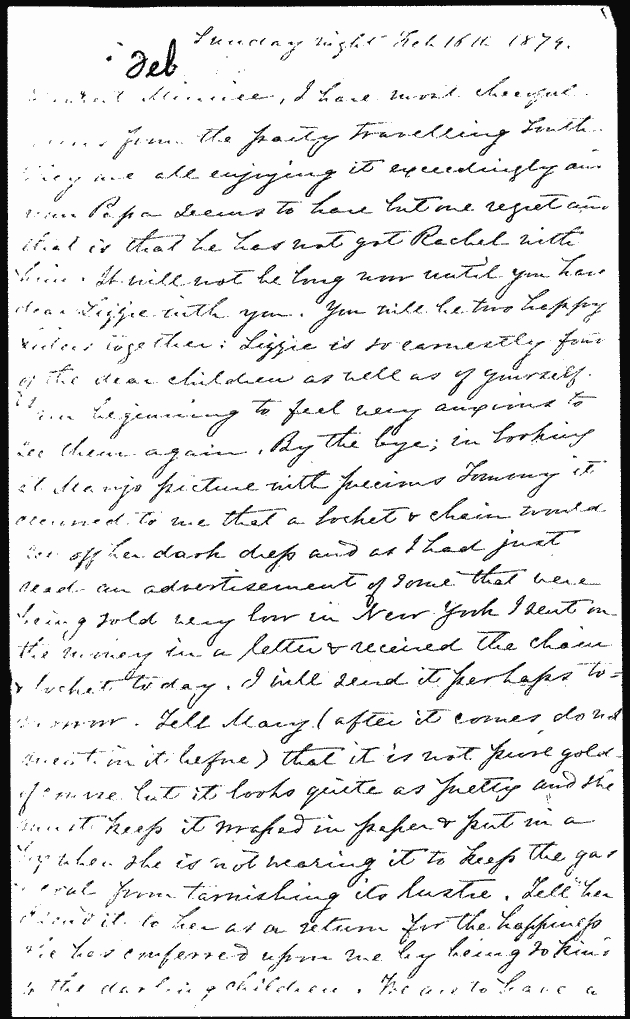 Sunday night Feb 16th 1879.
Feb
Minnie, I have most cheerful
from the party travelling South.
They are all enjoying it exceedingly and
your Papa seems to have but one regret and
that is that he has not got Rachel with
him. It will not be long now until you have
dear Lizzie with you. You will be two happy
sisters together: Lizzie is so earnestly fond
of the dear children as well as of yourself.
I am beginning to feel very anxious to
see them again. By the bye; in looking
at Marys picture with precious Tommy it
occurred to me that a locket & chain would
set off her dark dress and as I had just
read an advertisement of some that were
being sold very low in New York I sent on
the money in a letter & received the chain
& locket today. I will send it perhaps to=
morrow. Tell Mary (after it comes do not
mention it before) that it is not pure gold
of course but it looks quite as pretty and she
must keep it wraped in paper & put in a
box when she is not wearing it to keep the gas
& coal from tarnishing its lustre. Tell her
I send it to her as a return for the happiness
she has conferred upon me by being so kind
to the darling children. We are to have a